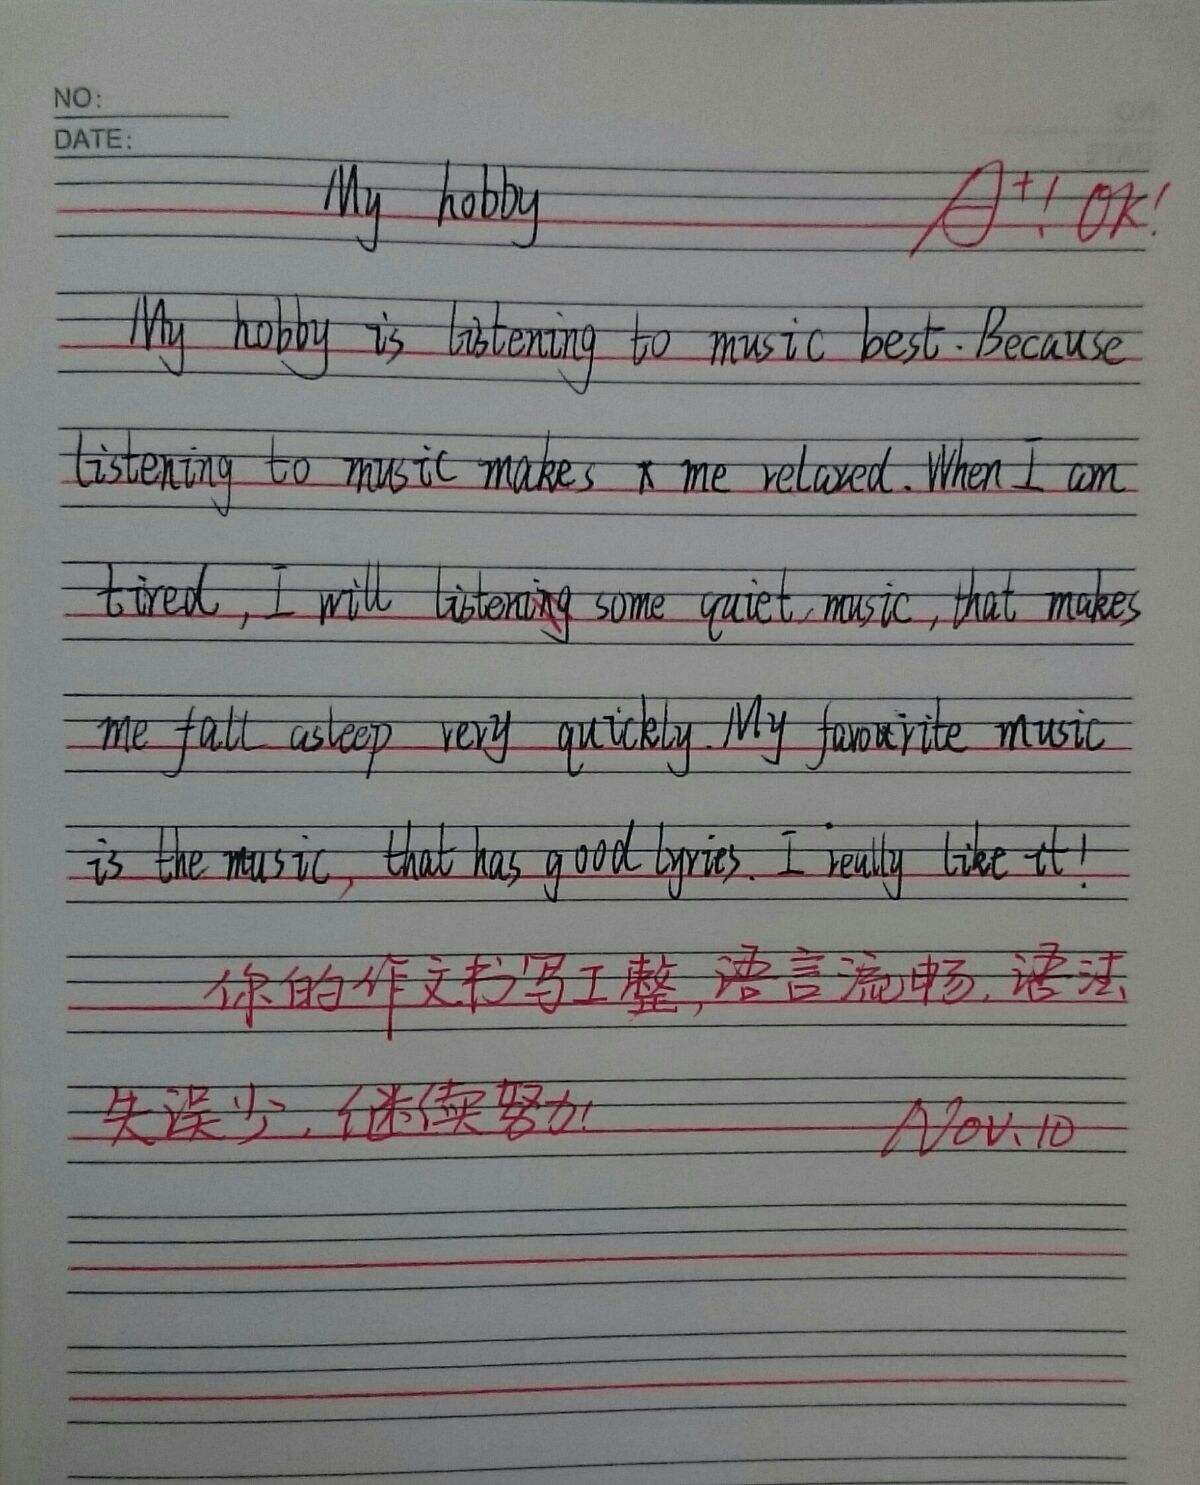 NO:
DATE:
My hobby
A+! OK!
My hobby is listening to music best. Because
listening to music makes me relaxed. When I am
tired, I will listening some quiet music, that makes
me fall asleep very quickly. My favourite music
is the music, that has good lyries. I really like it!
你的作文书写工整,语言流畅,语法
失误少,继续努力!
Nov. 10